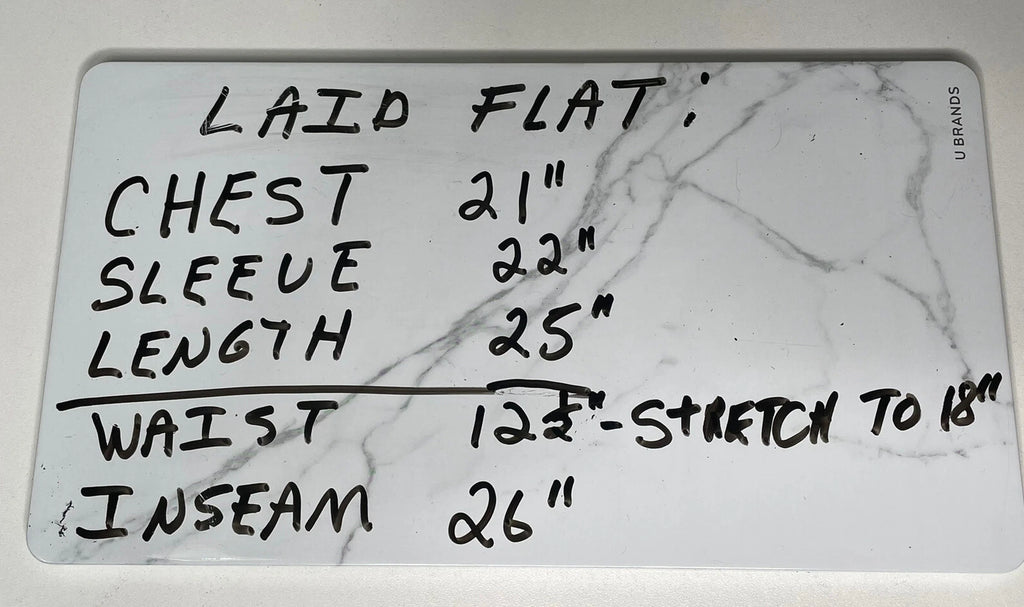 LAID FLAT:
U BRANDS
CHEST 21"
SLEEVE 22"
LENGTH 25"
WAIST 12½" - STRETCH TO 18"
INSEAM 26"